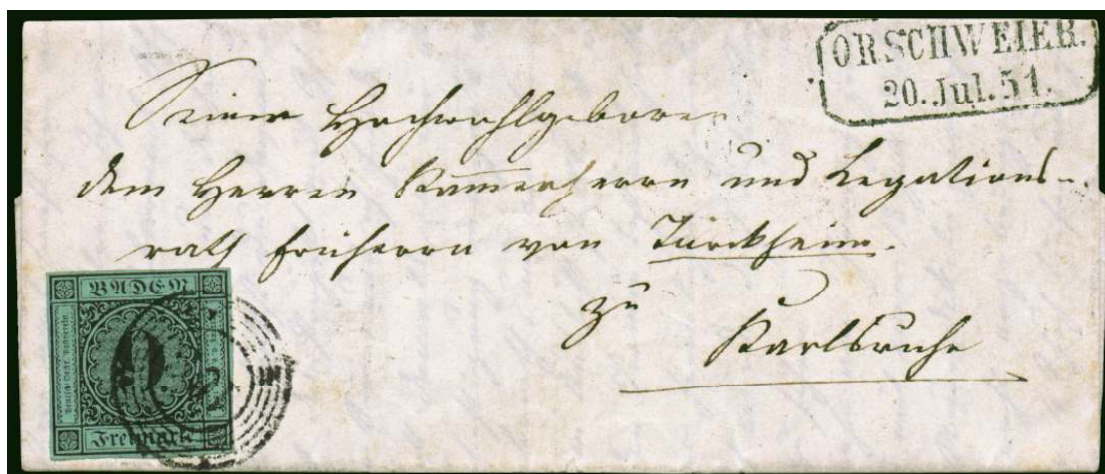 ORSCHWEIER.
20. Jul. 51.
Seiner Hochwohlgeboren
dem Herren Kammerherrn und Legations-
rath Freiherrn von Türckheim.
zu
Karlsruhe
BADEN
9
Freimark